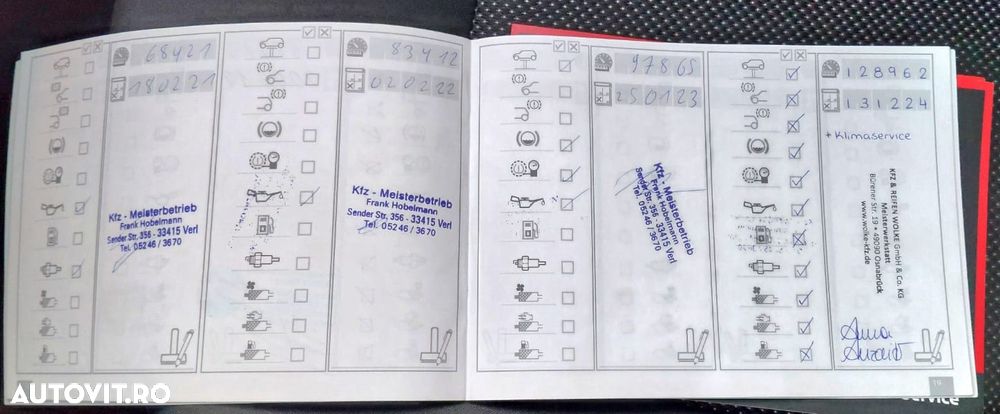 68421
180221
Kfz - Meisterbetrieb
Frank Hobelmann
Sender Str. 356 - 33415 Verl
Tel. 05246 / 3670
83412
020222
Kfz - Meisterbetrieb
Frank Hobelmann
Sender Str. 356 - 33415 Verl
Tel. 05246 / 3670
97865
250123
Kfz - Meisterbetrieb
Frank Hobelmann
Sender Str. 356 - 33415 Verl
Tel. 05246 / 3670
128962
131224
+ Klimaservice
KFZ & REIFEN WOLKE GmbH & Co. KG
Meisterwerkstatt
Bürener Str. 19 • 49090 Osnabrück
www.wolke-kfz.de
19
Service
AUTOVIT.RO